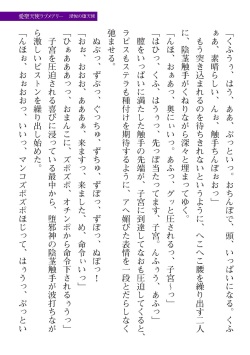 愛聖天使ラブメアリー
「くふうっ、はう、ああ、ぶっとい、おちんぽで、頭、いっぱいになる。くふ
ぅぁ、素晴らしい、んぉ、触手ちんぽぉおっ」
もう突き込まれるのを待ちきれないというように、へこへこ腰を繰り出す二人
に、陰茎触手がくねりながら深々と埋まってゆく。
「んほ、おぁぁっ、奥にいいっ、あふっ、グッと圧されるっ、子宮ぃっ」
「はひっ、くふ、はうぅっ、当たってます、子宮。んふぅっ、あふっ」
膣をいっぱいに満たした触手の先端が、子宮に到達してなおも圧迫してくると、
ラビエスもステラも種付けを期待するように、アヘ媚びた表情を一段とだらしなく
弛ませる。
ぬぷっ、ずぷっ、ぐっちゅ、ずちゅ、ずぽっ、ずぽっ、ぬぽっ！
「おぉ、おぉおおっ、ああぁぁ、来ますっ、来ました、め、命令いぃっ」
「ひぁあああっっ、おまんこに、ズポズポ、オチンポから命令下されるぅうっ」
子宮を圧迫される喜びに浸っている最中から、堕邪神の陰茎触手が波打ちなが
ら激しいピストンを繰り出し始めた。
「んほぉ、おぉおおっ、いいっ、マンコズボズボほじって、はぅうっ、ぶっとい